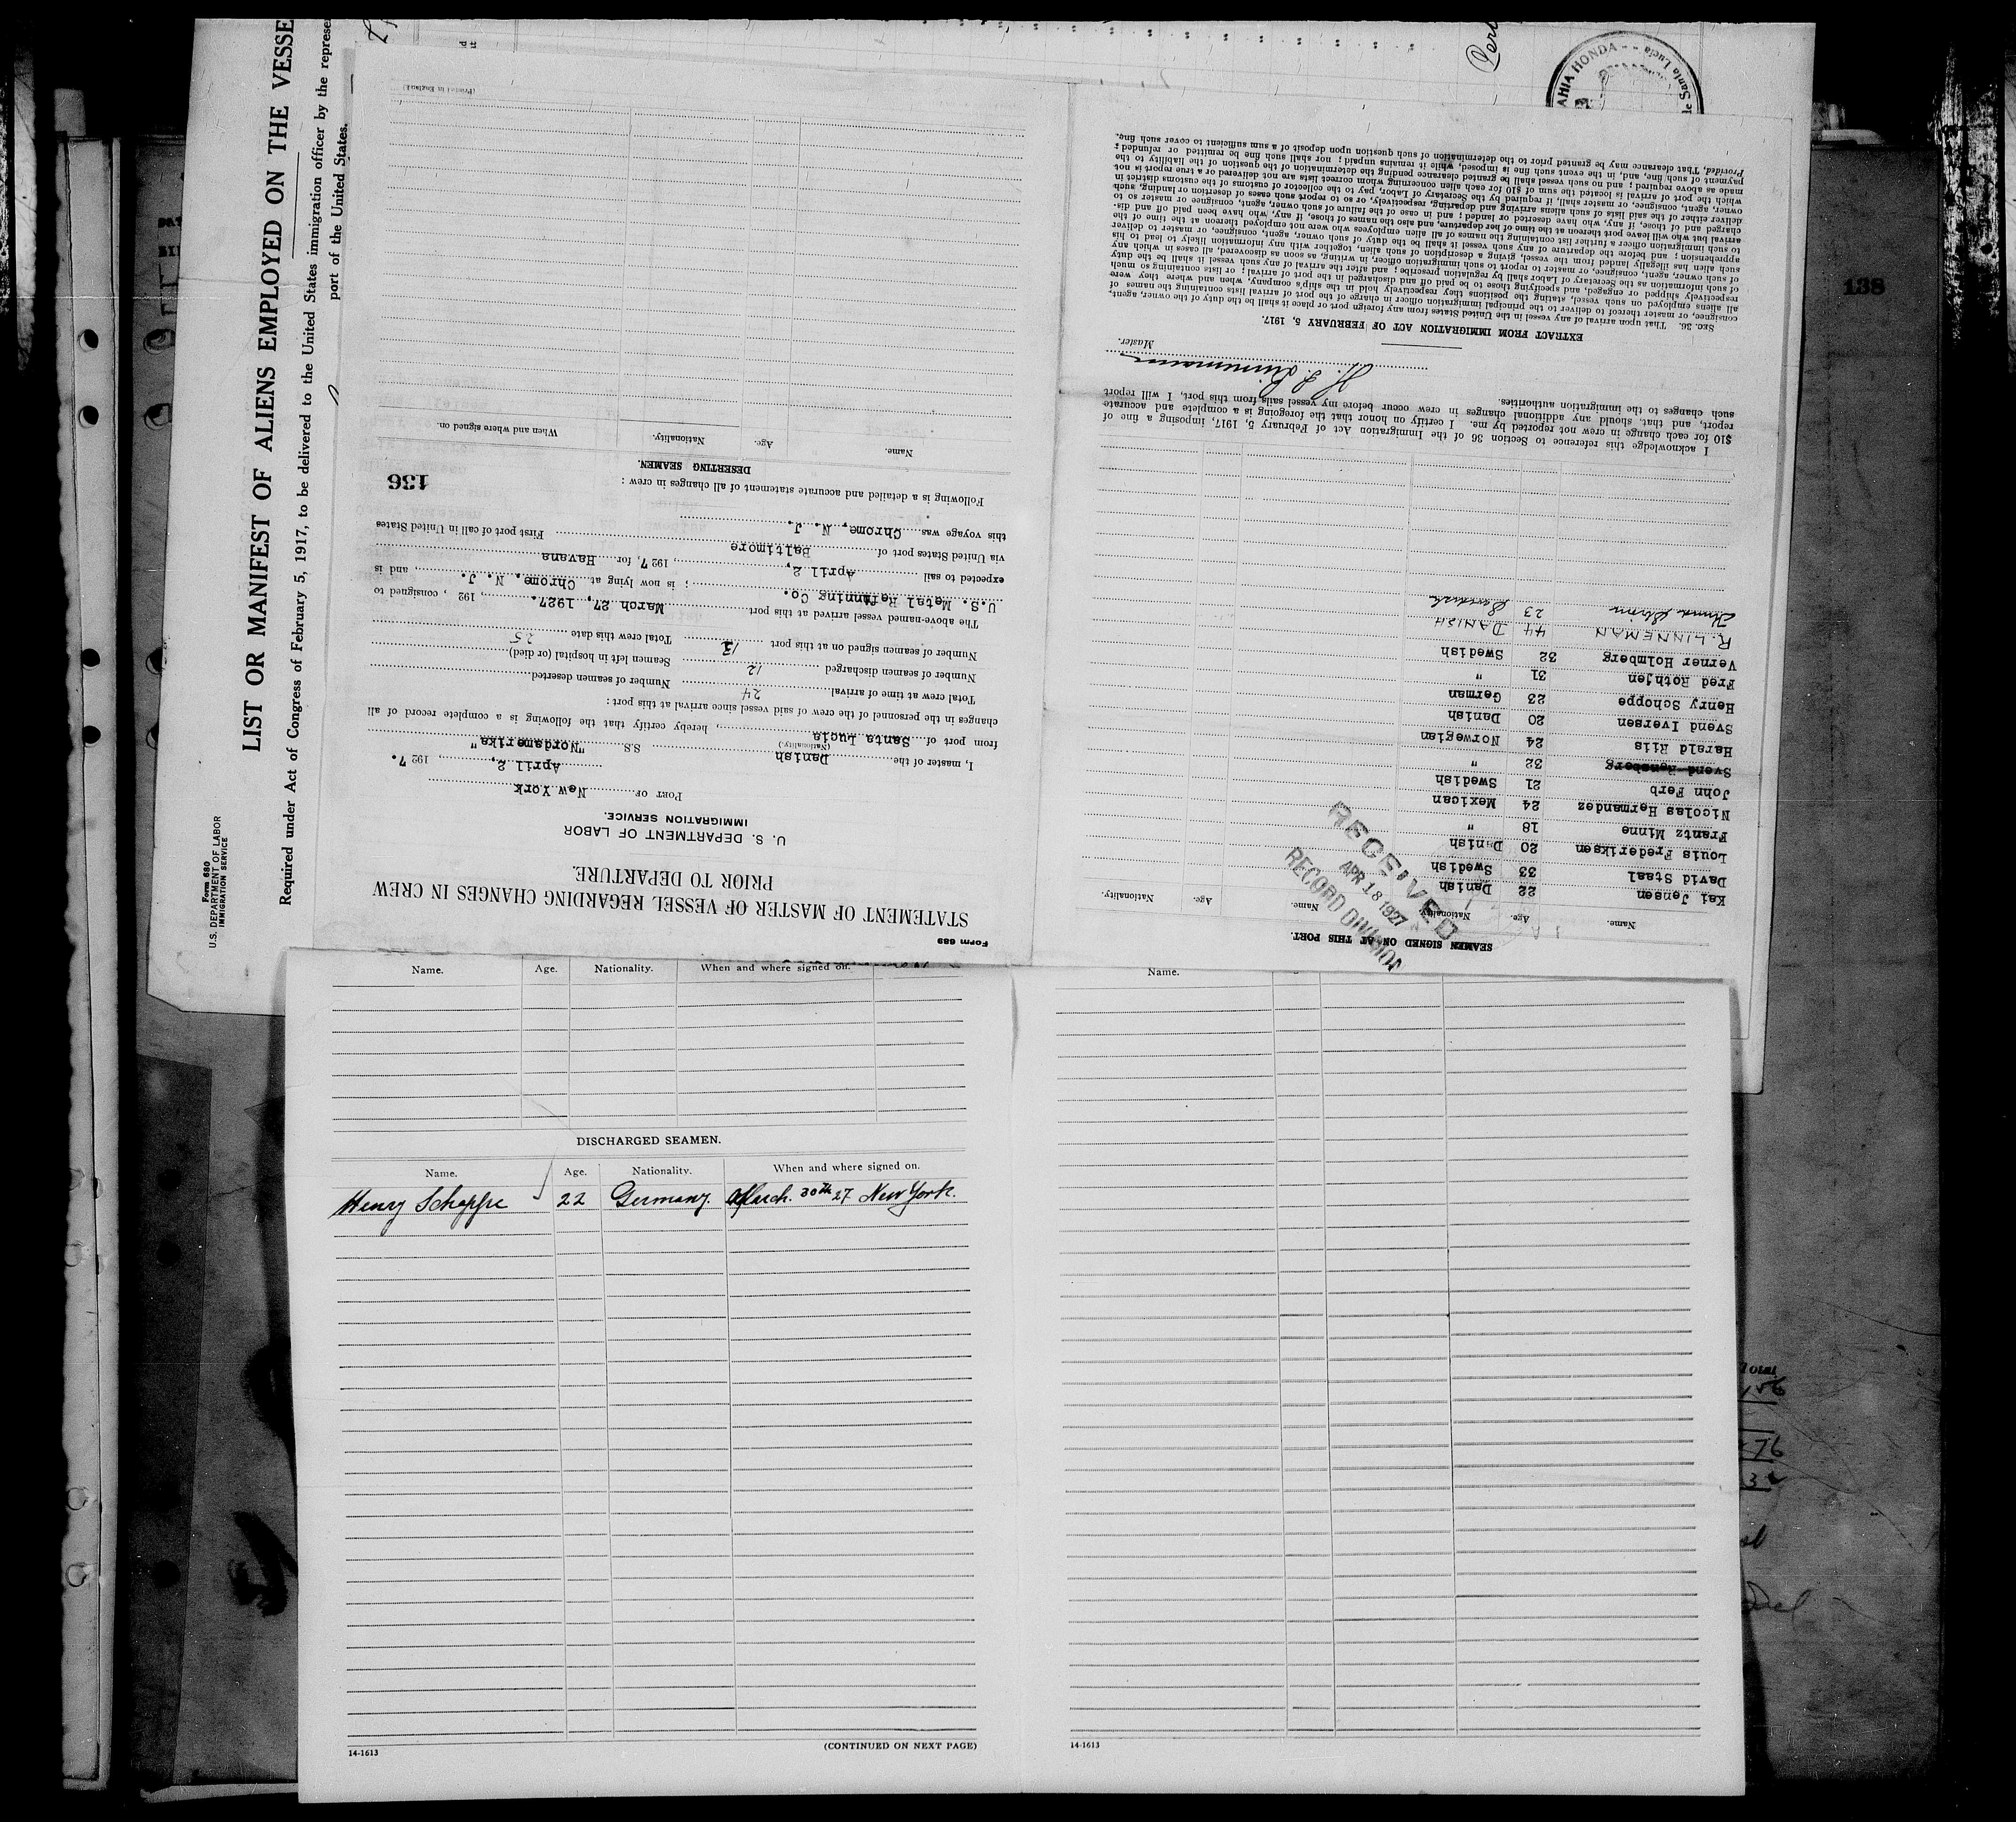 Form 680
U.S. DEPARTMENT OF LABOR
IMMIGRATION SERVICE
LIST OR MANIFEST OF ALIENS EMPLOYED ON THE VESSE
Required under Act of Congress of February 5, 1917, to be delivered to the United States immigration officer by the represe
port of the United States.
AHIA HONDA - - de Santa Lucia
138
Form 689
STATEMENT OF MASTER OF VESSEL REGARDING CHANGES IN CREW
PRIOR TO DEPARTURE.
U. S. DEPARTMENT OF LABOR
IMMIGRATION SERVICE.
PORT OF New York
April 2, 1927.
I, master of the Danish S.S. "Nordamerika"
(Nationality.)
from port of Santa Lucia, hereby certify that the following is a complete record of all
changes in the personnel of the crew of said vessel since arrival at this port:
Total crew at time of arrival 24 Number of seamen deserted
Number of seamen discharged 12 Seamen left in hospital (or died)
Number of seamen signed on at this port 13 Total crew this date 25
The above-named vessel arrived at this port March 27, 1927. , 192 , consigned to
U.S. Metal Refining Co. ; is now lying at Chrome, N. J. , and is
expected to sail April 2, , 1927, for Havana
via United States port of Baltimore First port of call in United States
this voyage was Chrome, N. J.
Following is a detailed and accurate statement of all changes in crew :
136
DESERTING SEAMEN.
Name. Age. Nationality. When and where signed on.
(Printed in England)
SEAMEN SIGNED ON AT THIS PORT.
Name. Age. Nationality. Name. Age. Nationality.
Kai Jensen 22 Danish
David Staal 33 Swedish
Louis Frederiksen 20 Danish
Frantz Minne 18 "
Nicolas Hernandez 24 Mexican
John Ferb 21 Swedish
Svend Rensberg 32 "
Harald Riis 24 Norwegian
Svend Iversen 20 Danish
Henry Schoppe 23 German
Fred Rothjen 31 "
Verner Holmberg 32 Swedish
R. LINNEMAN 44 DANISH
23
RECEIVED
APR 18 1927
RECORD DIVISION
I acknowledge this reference to Section 36 of the Immigration Act of February 5, 1917, imposing a fine of
$10 for each change in crew not reported by me. I certify on honor that the foregoing is a complete and accurate
report, and that, should any additional changes in crew occur before my vessel sails from this port, I will report
such changes to the immigration authorities.
Master.
EXTRACT FROM IMMIGRATION ACT OF FEBRUARY 5, 1917.
SEC. 36. That upon arrival of any vessel in the United States from any foreign port or place it shall be the duty of the owner, agent,
consignee, or master thereof to deliver to the principal immigration officer in charge of the port of arrival lists containing the names of
all aliens employed on such vessel, stating the positions they respectively hold in the ship's company, when and where they were
respectively shipped or engaged, and specifying those to be paid off and discharged in the port of arrival ; or lists containing so much
of such information as the Secretary of Labor shall by regulation prescribe ; and after the arrival of any such vessel it shall be the duty
of such owner, agent, consignee, or master to report to such immigration officer, in writing, as soon as discovered, all cases in which any
such alien has illegally landed from the vessel, giving a description of such alien, together with any information likely to lead to his
apprehension ; and before the departure of any such vessel it shall be the duty of such owner, agent, consignee, or master to deliver
to such immigration officer a further list containing the names of all alien employees who were not employed thereon at the time of the
arrival but who will leave port thereon at the time of her departure, and also the names of those, if any, who have been paid off and dis-
charged and of those, if any, who have deserted or landed ; and in case of the failure of such owner, agent, consignee or master so to
deliver either of the said lists of such aliens arriving and departing, respectively, or so to report such cases of desertion or landing, such
owner, agent, consignee, or master shall, if required by the Secretary of Labor, pay to the collector of customs of the customs district in
which the port of arrival is located the sum of $10 for each alien concerning whom correct lists are not delivered or a true report is not
made as above required ; and no such vessel shall be granted clearance pending the determination of the question of the liability to the
payment of such fine, and, in the event such fine is imposed, while it remains unpaid ; nor shall such fine be remitted or refunded ;
Provided, That clearance may be granted prior to the determination of such question upon deposit of a sum sufficient to cover such fine.
Name. Age. Nationality. When and where signed on.
Name.
DISCHARGED SEAMEN.
Name. Age. Nationality. When and where signed on.
Henry Schoppe 22 Germany. March. 30th 27 New York.
14-1613
(CONTINUED ON NEXT PAGE)
14-1613